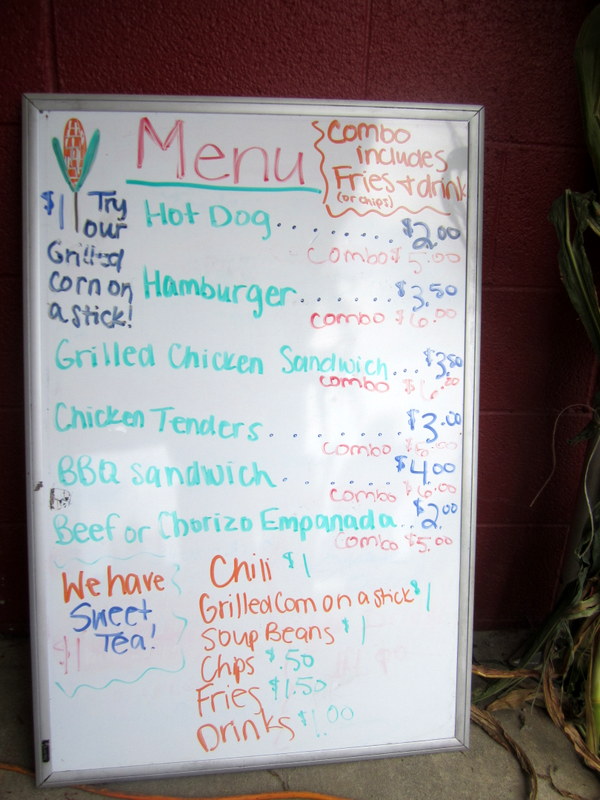 Menu
Combo
includes
Fries + drink
(or chips)
$1 Try
our
Grilled
corn on
a stick!
Hot Dog........ $2.00
combo $5.00
Hamburger....... $3.50
combo $6.00
Grilled Chicken Sandwich... $3.50
combo $6.00
Chicken Tenders........ $3.00
combo
BBQ Sandwich........ $4.00
combo $6.00
Beef or Chorizo Empanada.. $2.00
combo $5.00
We have
Sweet
Tea!
$1
Chili $1
Grilled Corn on a stick $1
Soup Beans $1
Chips $.50
Fries $1.50
Drinks $1.00